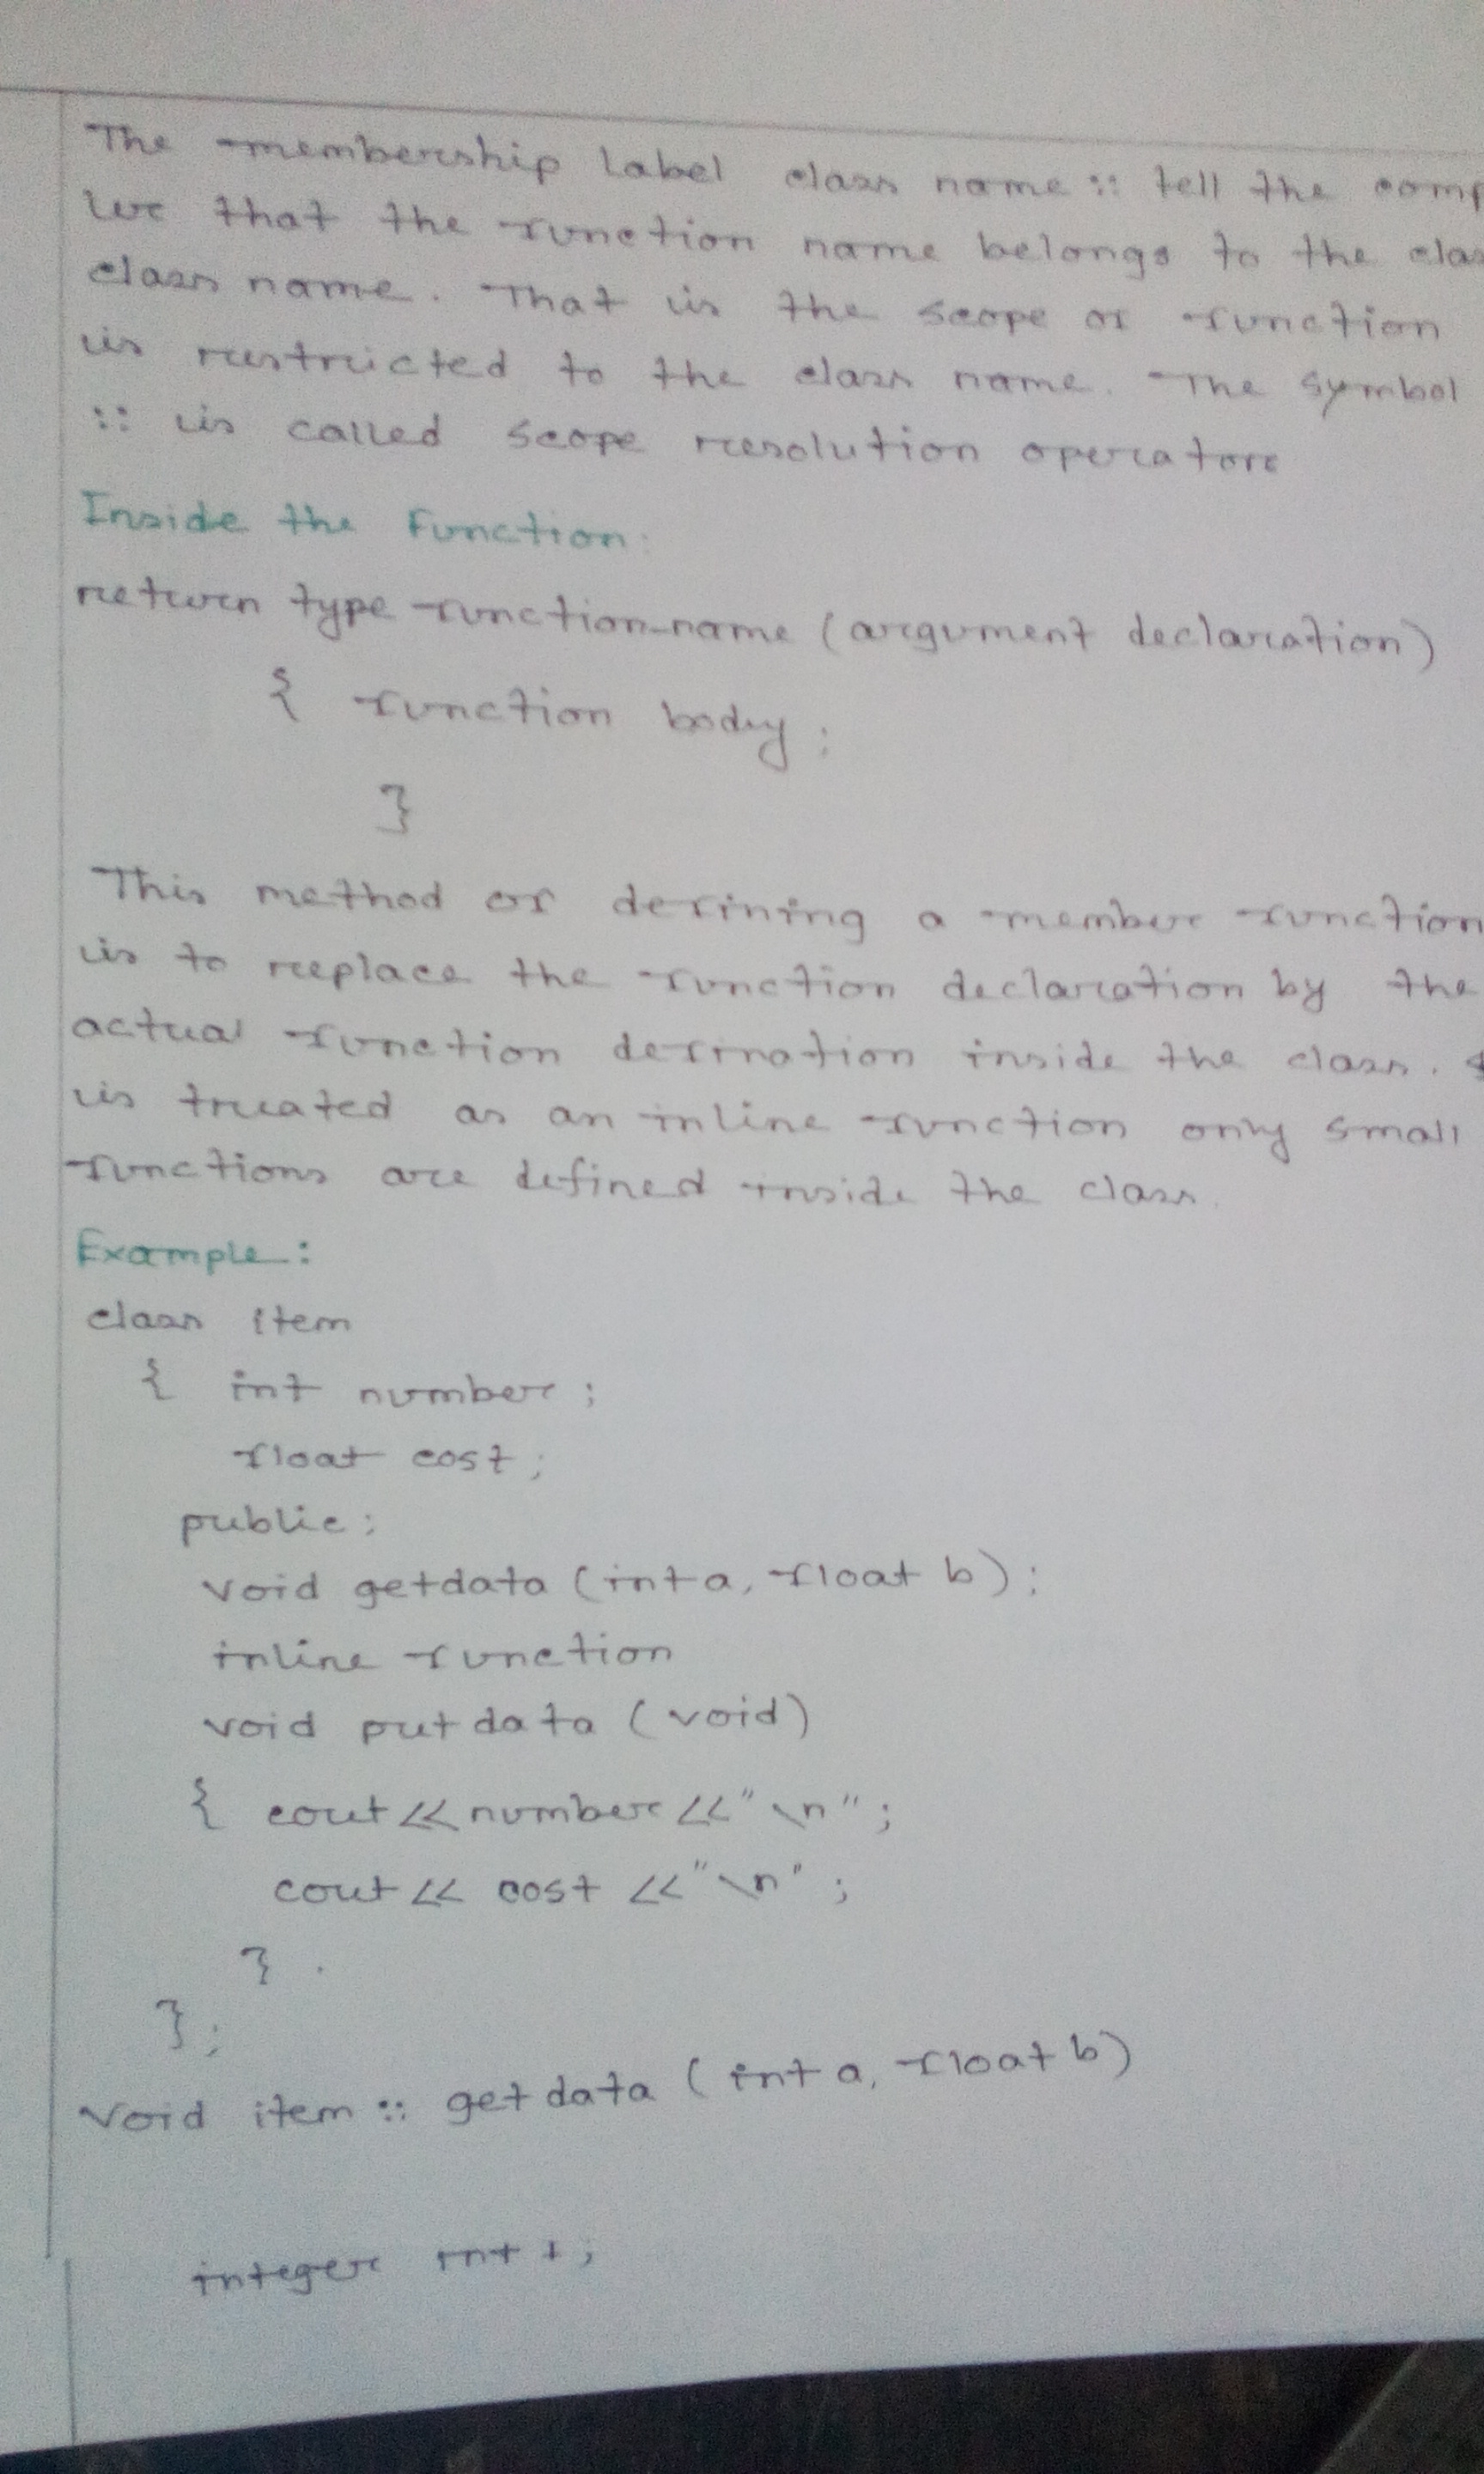 The membership Label class name :: tell the comp
ler that the function name belongs to the clas
class name. That is the scope of function
is restricted to the class name. The symbol
:: is called scope resolution operator
Inside the Function:
return type function-name (argument declaration)
{ function body ;
}
This method of defining a member function
is to replace the function declaration by the
actual function defination inside the class.
is treated as an inline function only small
functions are defined inside the class.
Example:
class item
{ int number ;
float cost ;
public :
void getdata (int a, float b) ;
inline function
void putdata (void)
{ cout << number << "\n" ;
cout << cost << "\n" ;
} .
} ;
void item :: getdata ( int a, float b)
integer int 1 ;